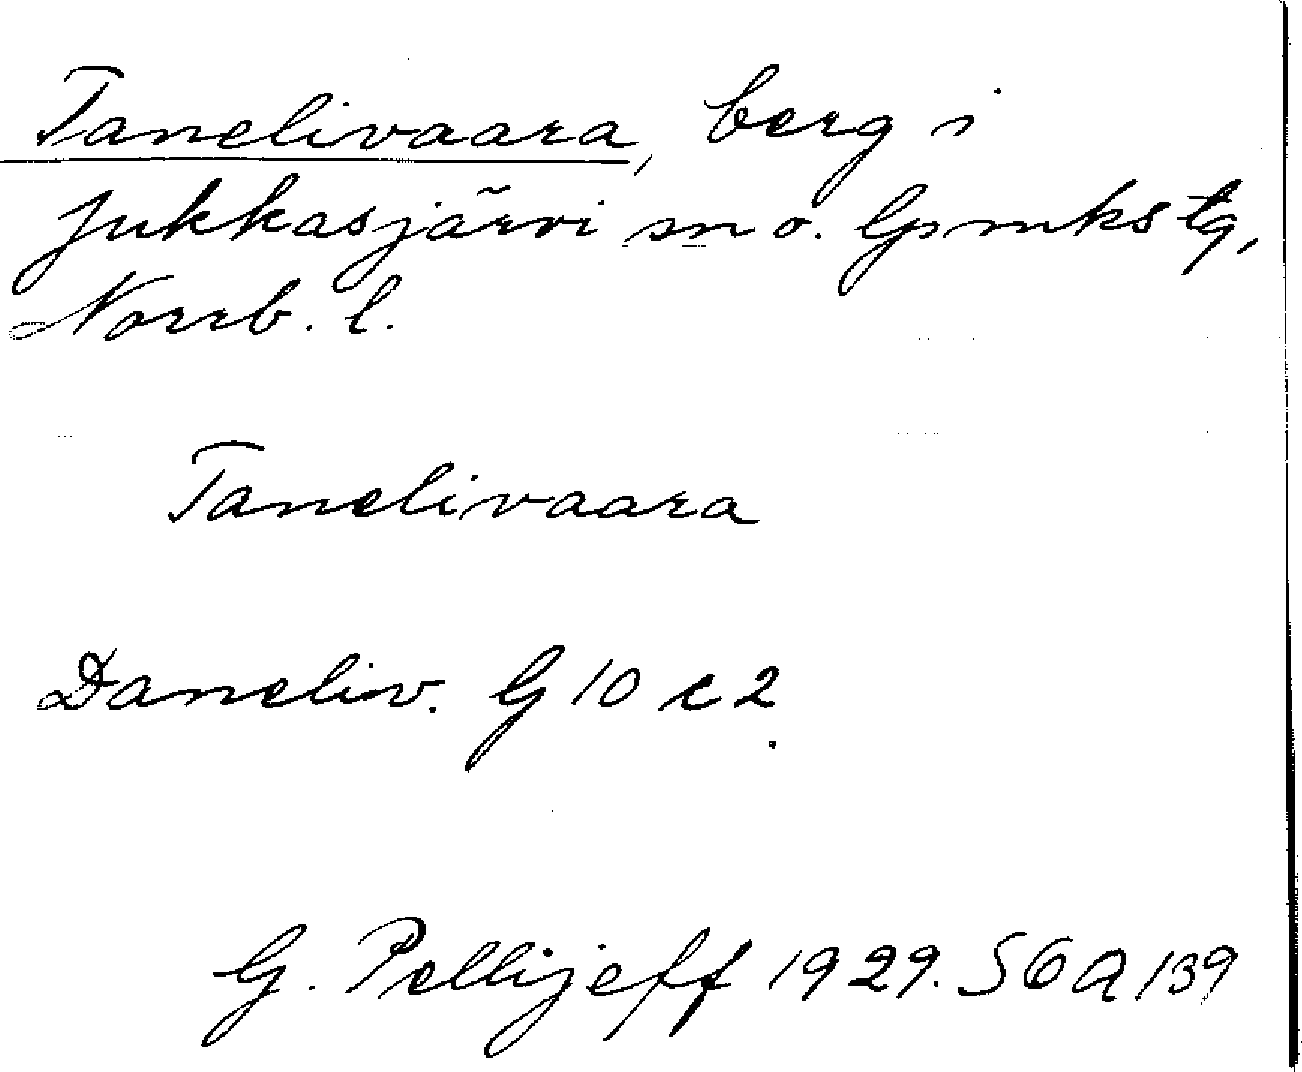 Tanelivaara, berg i
Jukkasjärvi sn o. Gpmkstg,
Norrb. l.
Tanelivaara
Daneliv. G 10 c 2.
G. Pellijeff 1929. SGA 139